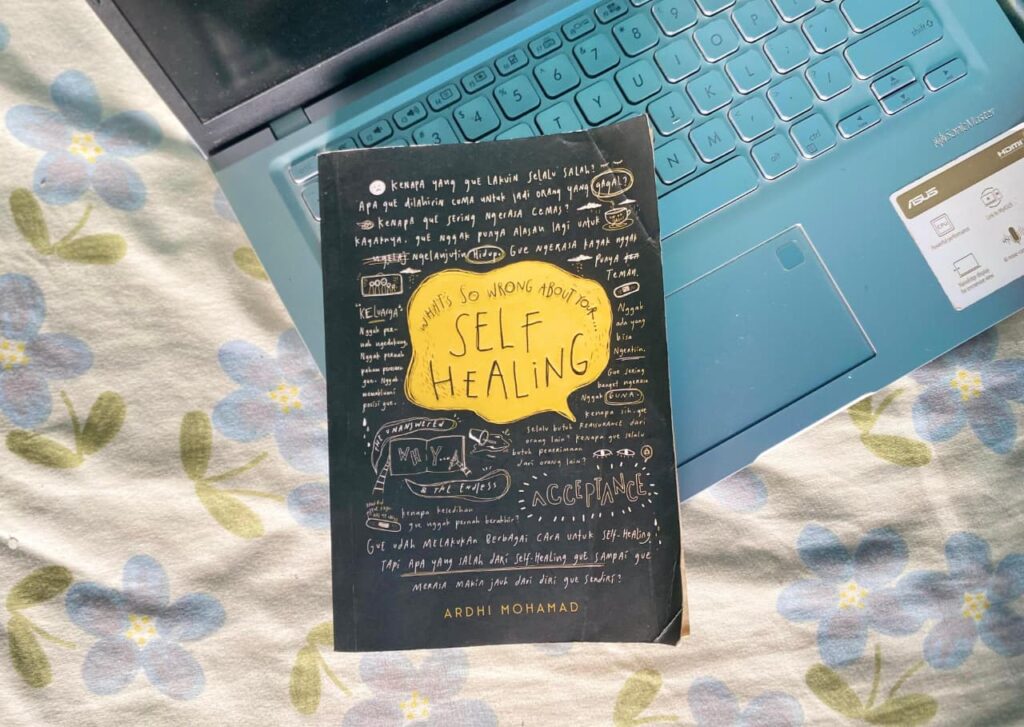 KENAPA YANG GUE LAKUIN SELALU SALAH?
APA GUE DILAHIRIN CUMA UNTUK JADI ORANG YANG GAGAL?
KENAPA GUE SERING NGERASA CEMAS?
KAYAKNYA, GUE NGGAK PUNYA ALASAN LAGI UNTUK
NGELANJUTIN HIDUP. GUE NGERASA KAYAK NGGAK
PUNYA
TEMAN.
WHAT'S SO WRONG ABOUT YOUR...
SELF
HEALING
"KELUARGA"
Nggak per-
nah ngedukung.
Nggak pernah
paham perasaan
gue. Nggak
memaklumi
posisi gue.
Nggak
ada yang
bisa
Ngertiin.
Gue sering
banget ngerasa
Nggak GUNA.
kenapa sih, gue
selalu butuh REASSURANCE dari
orang lain? kenapa gue selalu
butuh penerimaan
dari orang lain?
THE UNANSWERED
WHY...A
& THE ENDLESS
ACCEPTANCE
kenapa kesedihan
gue nggak pernah berakhir?
GUE UDAH MELAKUKAN BERBAGAI CARA UNTUK SELF-HEALING,
TAPI APA YANG SALAH DARI SELF-HEALING GUE SAMPAI GUE
MERASA MAKIN JAUH DARI DIRI GUE SENDIRI?
ARDHI MOHAMAD
3 4 5 6 7 8 9
T Y U I O P
J K L
N M
shift
ctrl
alt
SonicMaster
HDMI
ASUS
CPU
Powerful performance